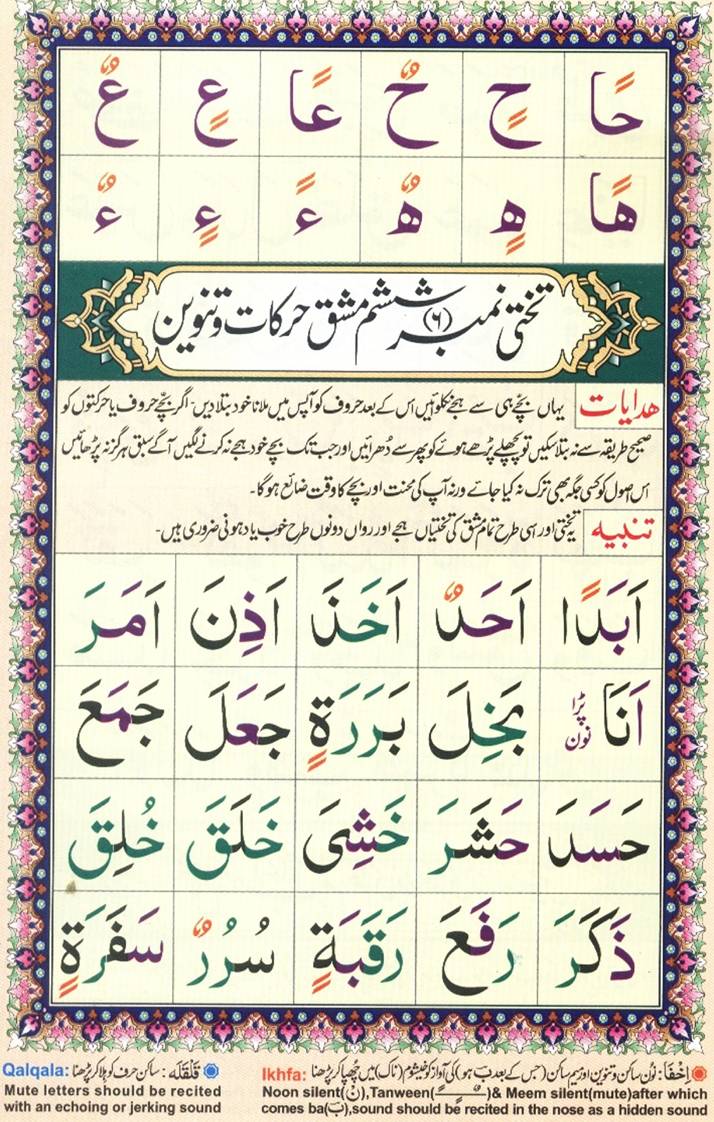 حًا حٍ حٌ عًا عٍ عٌ
هًا هٍ هٌ ءً ءٍ ءٌ
تختی نمبر (۶) ششم مشق حرکات و تنوین
هدایات یہاں بچے ہی سے ہجے نکلوائیں اس کے بعد حروف کو آپس میں ملانا خود بتلا دیں۔ اگر بچے حروف یا حرکتوں کو
صحیح طریقہ سے نہ بتلا سکیں تو پچھلے پڑھے ہوئے کو پھر سے دُھرائیں اور جب تک بچے خود ہجے نہ کرنے لگیں آگے سبق ہرگز نہ پڑھائیں
اس اصول کو کسی جگہ بھی ترک نہ کیا جائے ورنہ آپ کی محنت اور بچے کا وقت ضائع ہوگا۔
تنبیہ یہ تختی اور اسی طرح تمام مشق کی تختیاں ہجے اور رواں دونوں طرح خوب یاد ہونی ضروری ہیں۔
اَبَدًا اَحَدٌ اَخَذَ اَذِنَ اَمَرَ
اَنَا پڑا نون بَخِلَ بَرَرَةٍ جَعَلَ جَمَعَ
حَسَدَ حَشَرَ خَشِیَ خَلَقَ خُلِقَ
ذَکَرَ رَفَعَ رَقَبَةٍ سُرُرٌ سَفَرَةٍ
اِخْفَا: نُون ساکن و تنوین اور میم ساکن (جس کے بعد بَ ہو) کی آواز کو خیشوم (ناک) میں چُھپا کر پڑھنا Ikhfa:
Noon silent(نْ),Tanween(ـًـٍـٌ)& Meem silent(mute)after which
comes ba(بَ),sound should be recited in the nose as a hidden sound
قَلْقَلَه: ساکن حرف کو ہلا کر پڑھنا Qalqala:
Mute letters should be recited
with an echoing or jerking sound